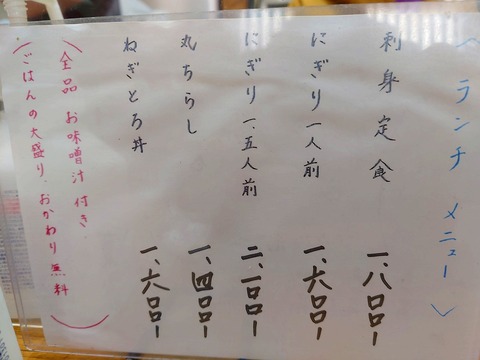 〈ランチ メニュー〉
刺身定食 一、八〇〇ー
にぎり 一人前 一、六〇〇ー
にぎり 一、五人前 二、一〇〇ー
丸ちらし 一、四〇〇ー
ねぎとろ丼 一、六〇〇ー
(全品 お味噌汁 付き
ごはんの大盛り、おかわり 無料)